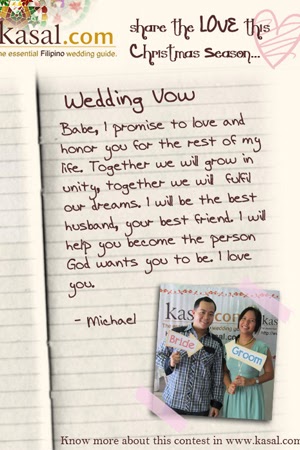 kasal.com
the essential Filipino wedding guide.
share the LOVE this
Christmas Season...
Wedding Vow
Babe, I promise to love and
honor you for the rest of my
life. Together we will grow in
unity, together we will fulfil
our dreams. I will be the best
husband, your best friend. I will
help you become the person
God wants you to be. I love
you.
- Michael
kasal.com
Bride
Groom
Know more about this contest in www.kasal.com